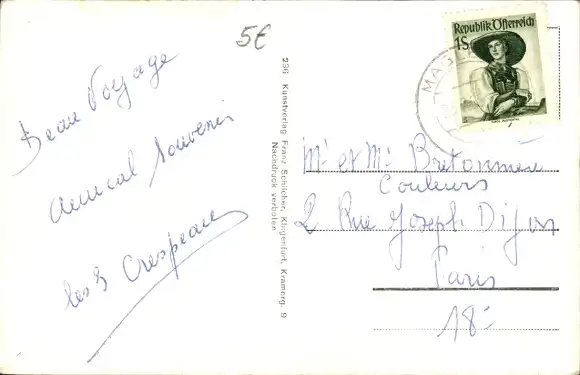 5€
Beau Voyage
Amical Souvenir
les Crespeau
236 Kunstverlag Franz Schilcher, Klagenfurt, Kramerg. 9
Nachdruck verboten
Republik Österreich
1S
MAG
Mr et Me Bretonnier
Couleurs
2 Rue Joseph Dijon
Paris
18e